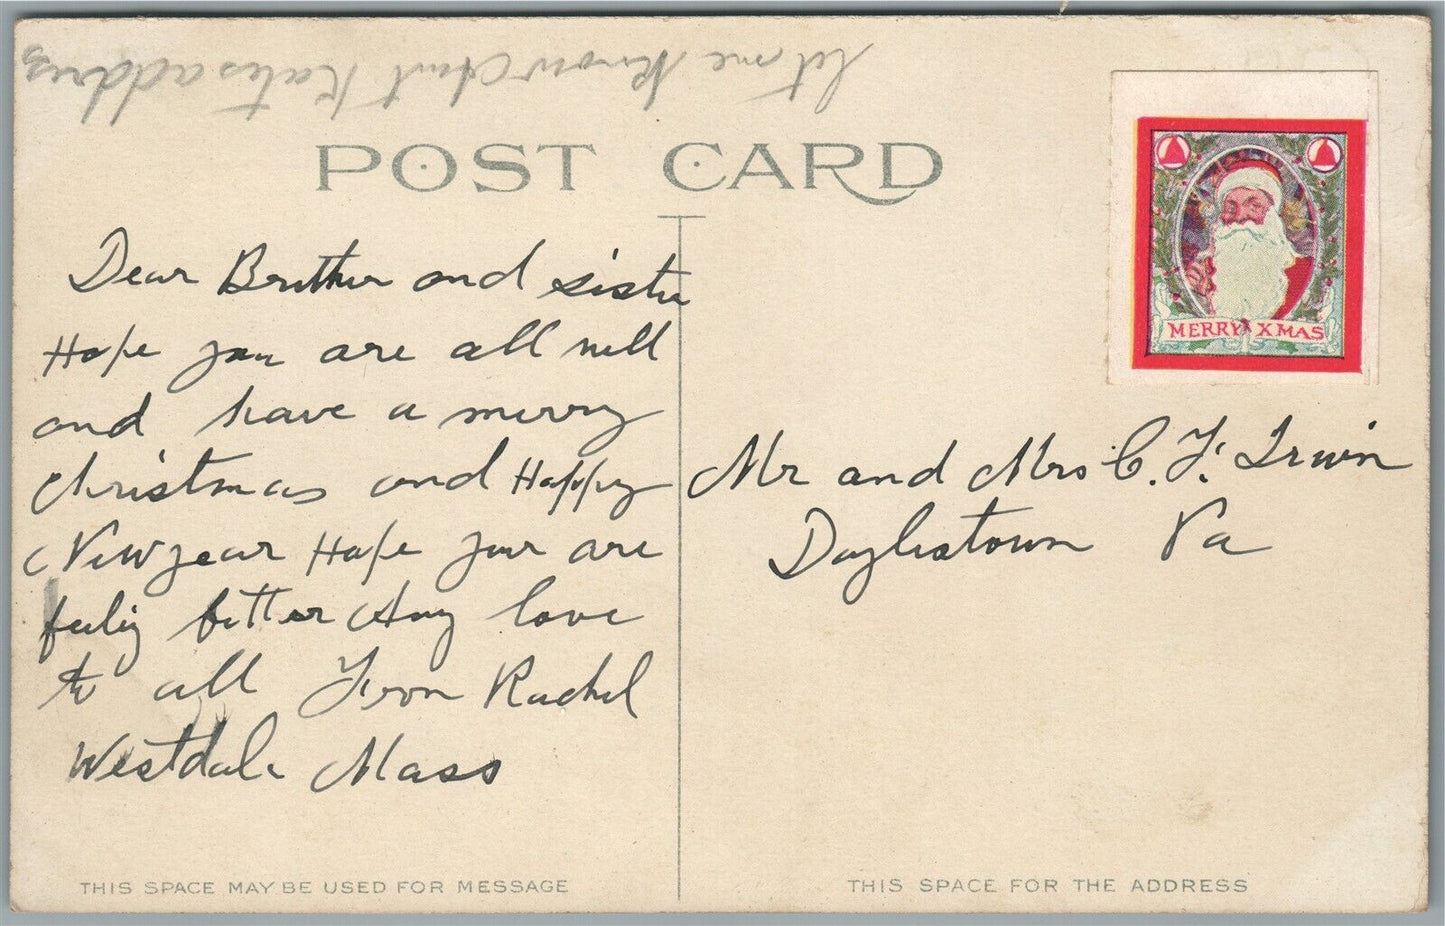 let me know Aunt Kates address
POST CARD
Dear Bruther and sister
Hope you are all well
and have a merry
Christmas and Happy
Newyear Hope your are
feelig better Any love
to all From Rachel
Westdale Mass
MERRY XMAS
Mr and Mrs C. F. Irwin
Doylestown Pa
THIS SPACE MAY BE USED FOR MESSAGE
THIS SPACE FOR THE ADDRESS